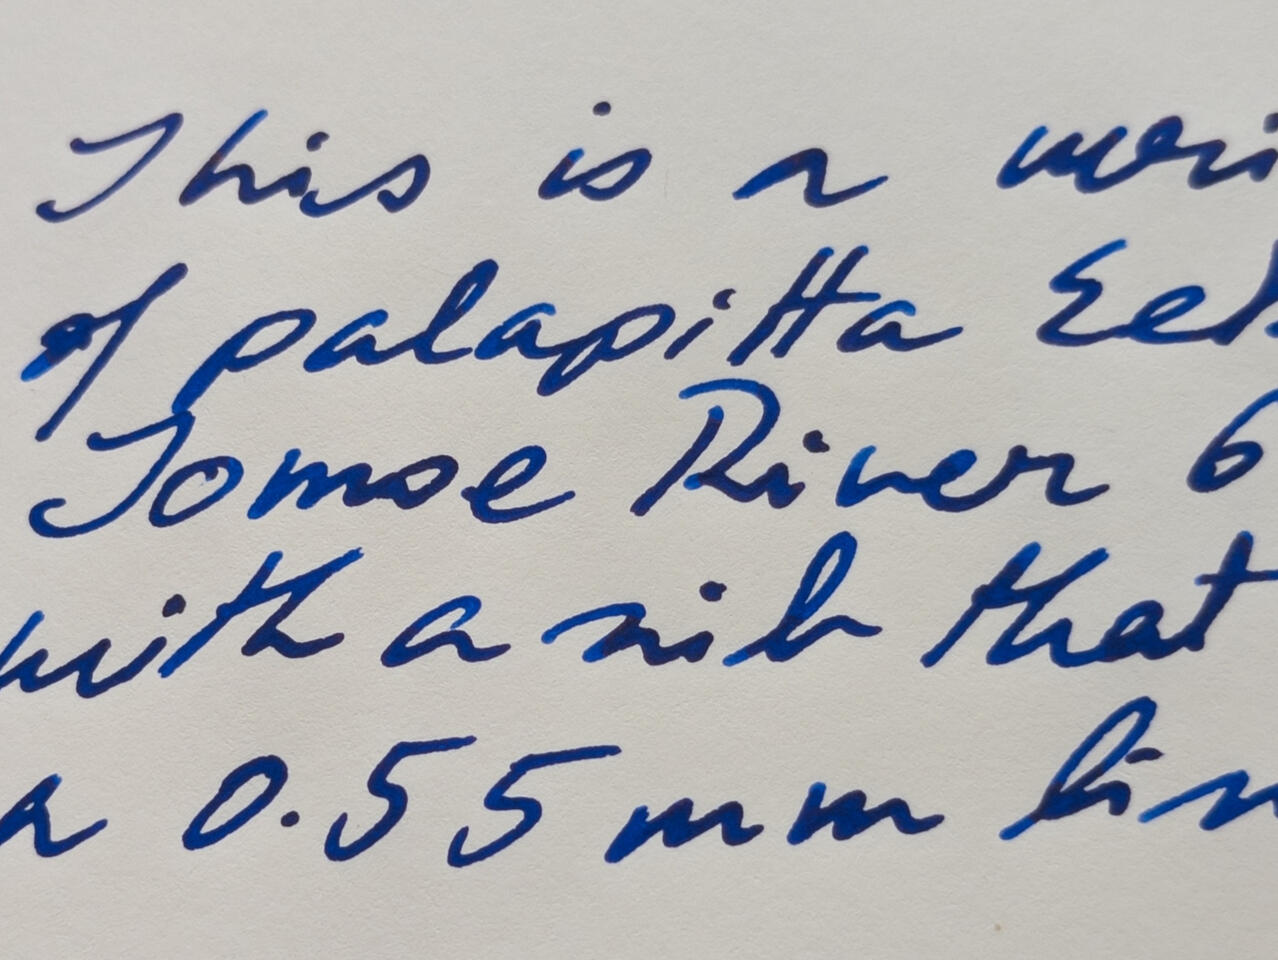 This is a wri
of palapitta Eet
Tomoe River 6
with a nib that
a 0.55 mm lin